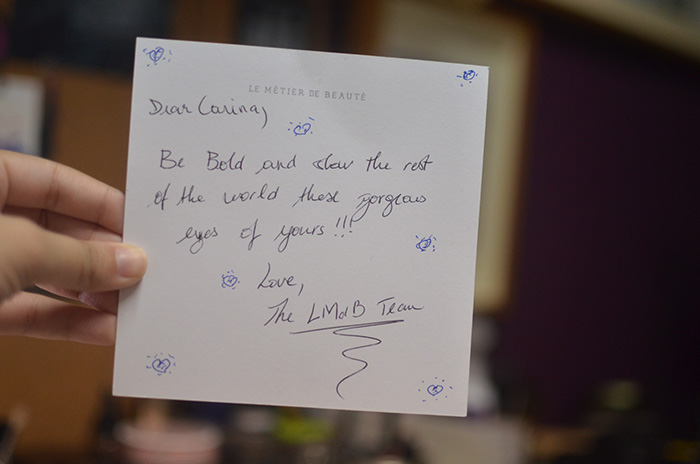 LE MÉTIER DE BEAUTÉ
Dear Carina,
Be Bold and show the rest
of the world these gorgeous
eyes of yours !!!
Love,
The LMdB Team